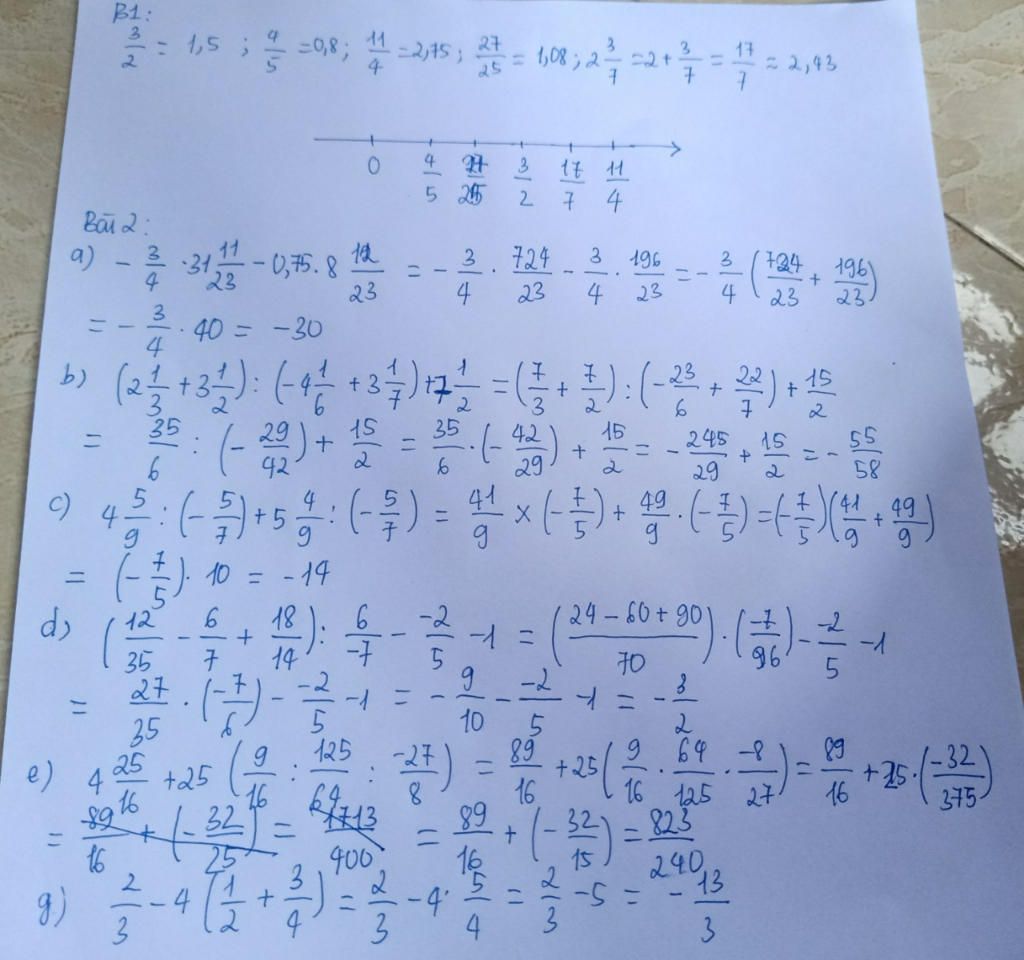 B1:
3/2 = 1,5 ; 4/5 = 0,8 ; 11/4 = 2,75 ; 27/25 = 1,08 ; 2 3/7 = 2 + 3/7 = 17/7 = 2,43
0 4/5 27/25 3/2 17/7 11/4
Bài 2:
a) - 3/4 · 31 11/23 - 0,75 . 8 12/23 = - 3/4 · 724/23 - 3/4 · 196/23 = - 3/4 (724/23 + 196/23)
= - 3/4 · 40 = -30
b) (2 1/3 + 3 1/2) : (-4 1/6 + 3 1/7) + 7 1/2 = (7/3 + 7/2) : (- 23/6 + 22/7) + 15/2
= 35/6 : (- 29/42) + 15/2 = 35/6 · (- 42/29) + 15/2 = - 245/29 + 15/2 = - 55/58
c) 4 5/9 : (- 5/7) + 5 4/9 : (- 5/7) = 41/9 × (- 7/5) + 49/9 · (- 7/5) = (- 7/5)(41/9 + 49/9)
= (- 7/5) · 10 = -14
d) (12/35 - 6/7 + 18/14) : 6/-7 - -2/5 - 1 = ((24 - 60 + 90)/70) · (-7/6) - -2/5 - 1
= 27/35 · (-7/6) - -2/5 - 1 = - 9/10 - -2/5 - 1 = - 3/2
e) 4 25/16 + 25 (9/16 : 125/64 : -27/8) = 89/16 + 25 (9/16 · 64/125 · -8/27) = 89/16 + 25 · (-32/375)
= 89/16 + (- 32/25) = 1713/400 = 89/16 + (- 32/15) = 823/240
g) 2/3 - 4 (1/2 + 3/4) = 2/3 - 4 · 5/4 = 2/3 - 5 = - 13/3